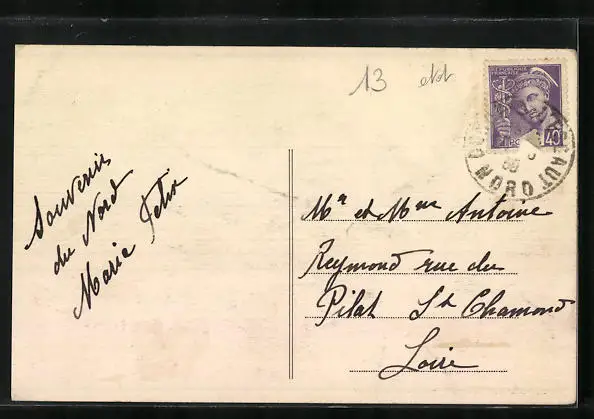 13
Souvenir
du Nord
Marie
REPUBLIQUE
FRANÇAISE
40
NORD
Mr et Mme Antoine
Reymond rue du
Pilat St Chamond
Loire